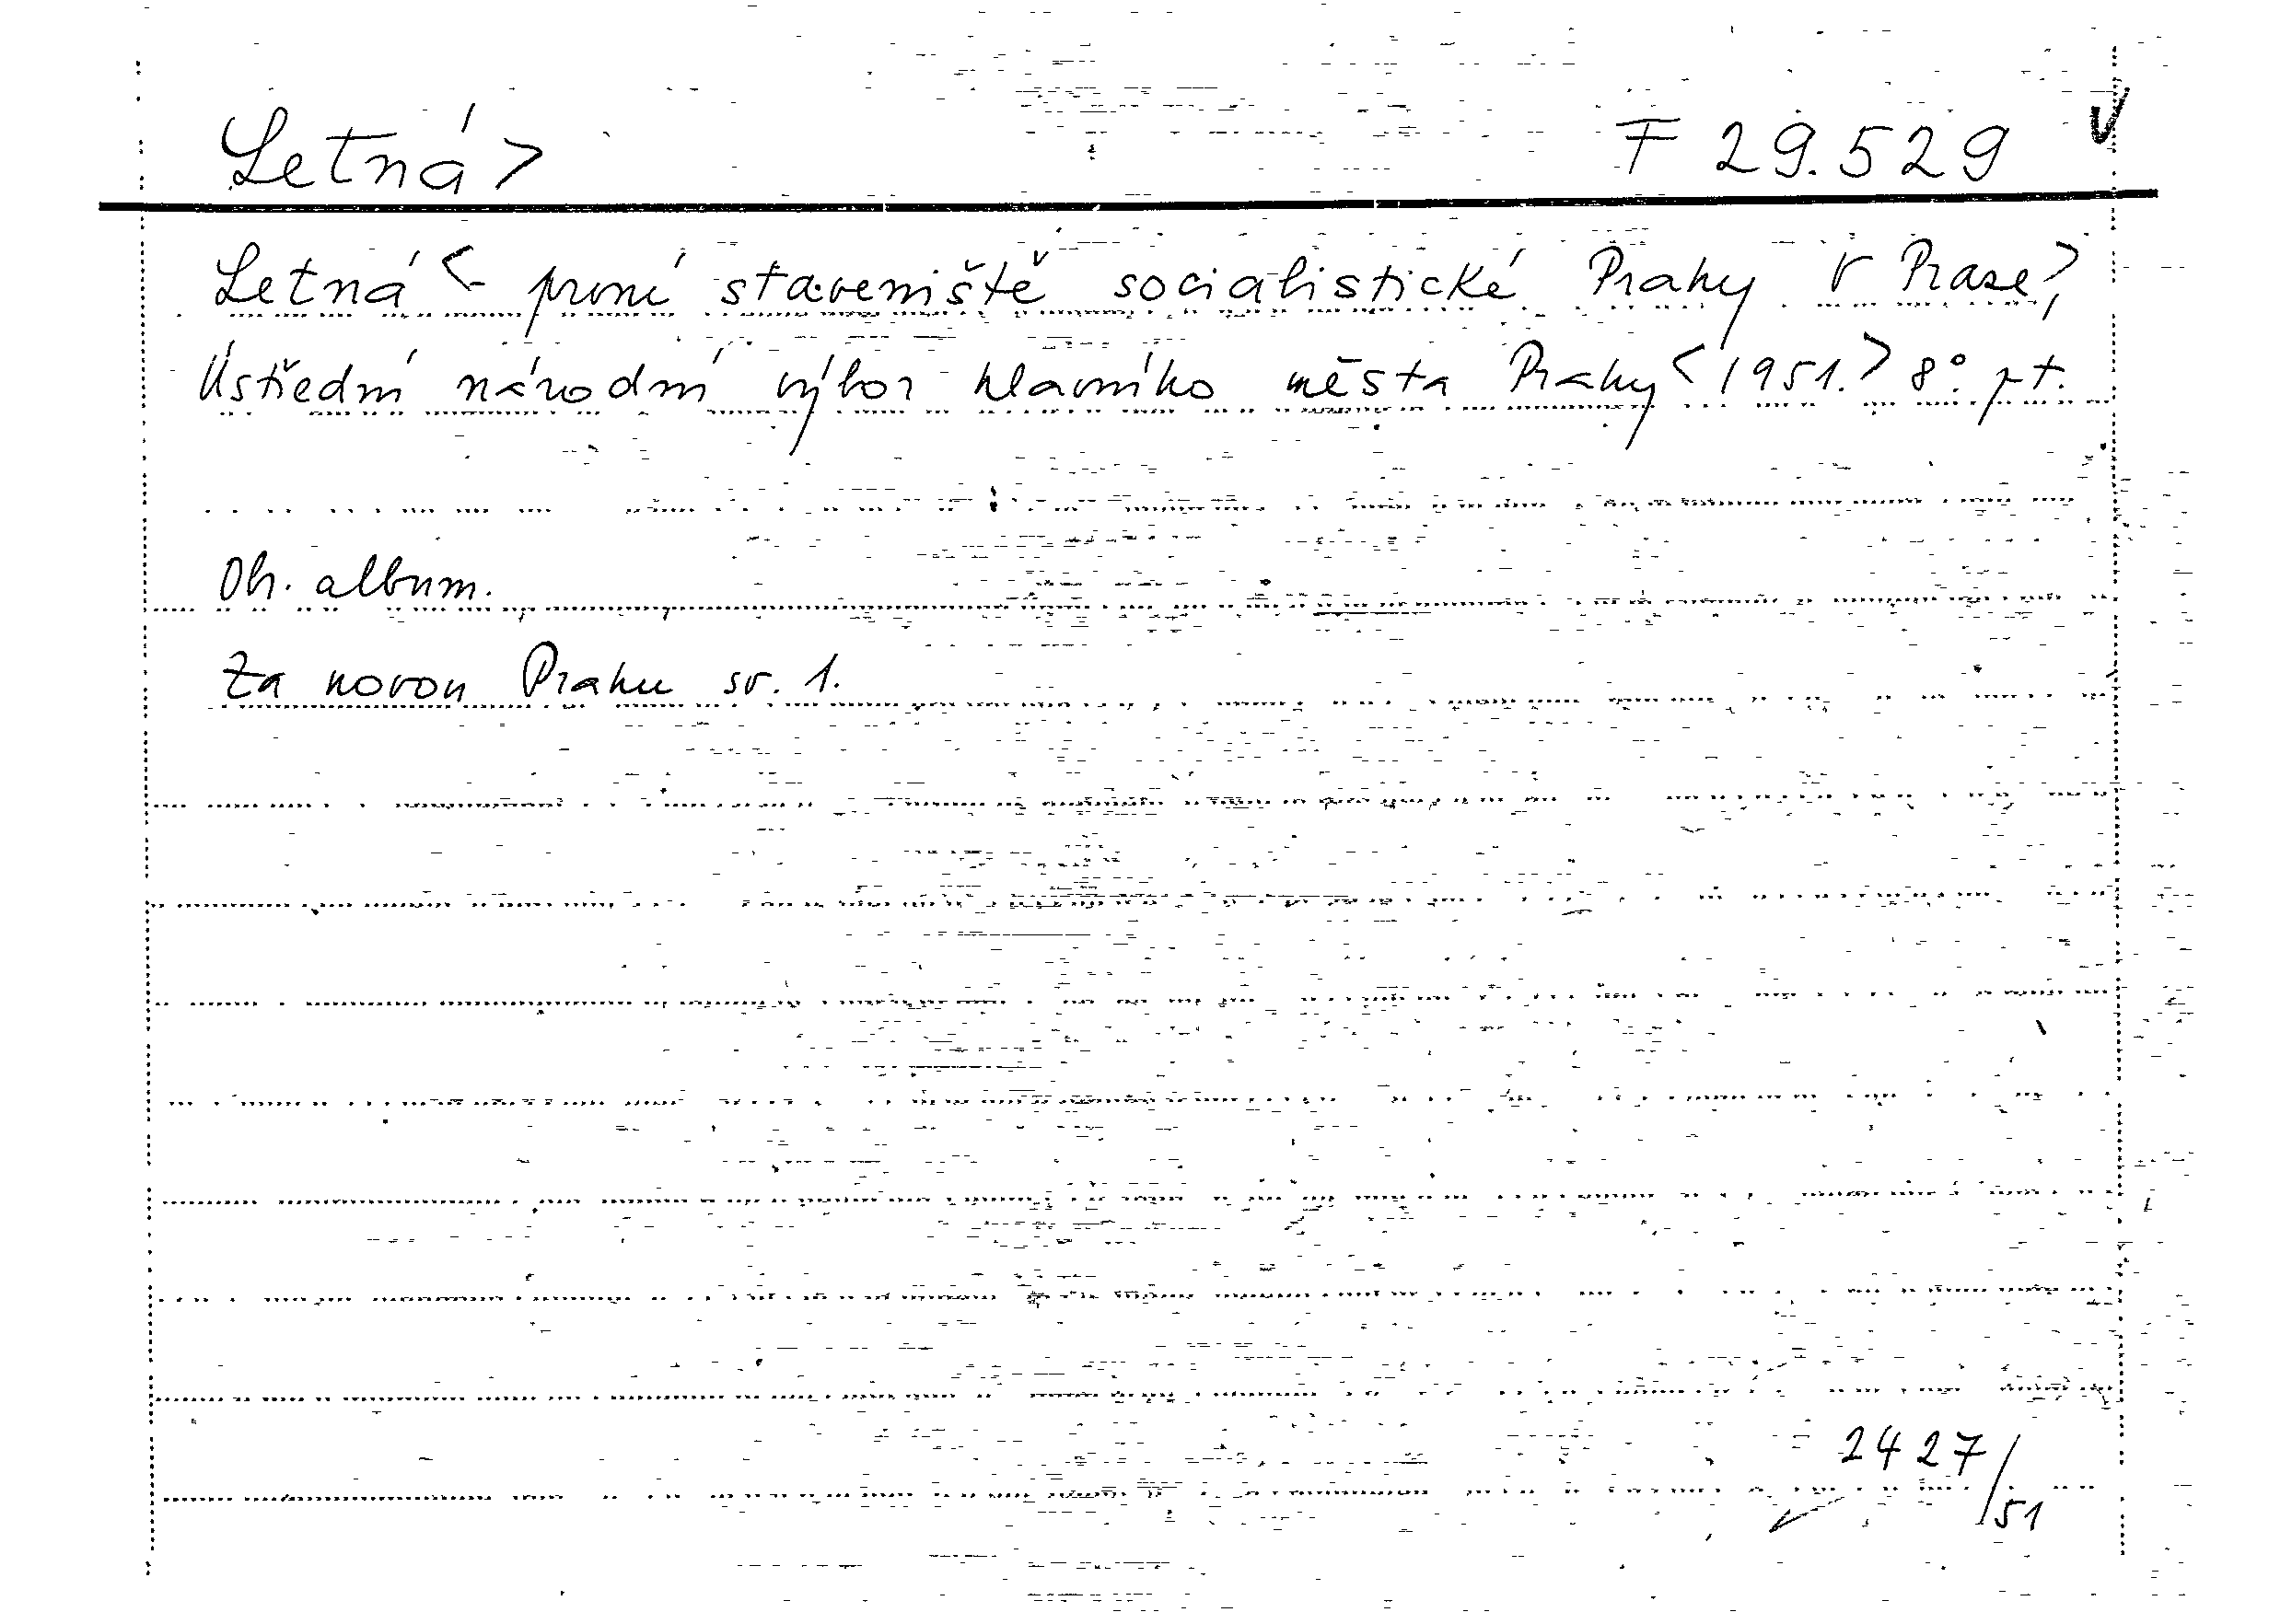 Letná> F 29.529
Letná <- první staveniště socialistické Prahy. V Praze>,
Ústřední národní výbor hlavního města Prahy <1951.> 8°. pt.
Ob. album.
Za novou Prahu sv. 1.
2427/51